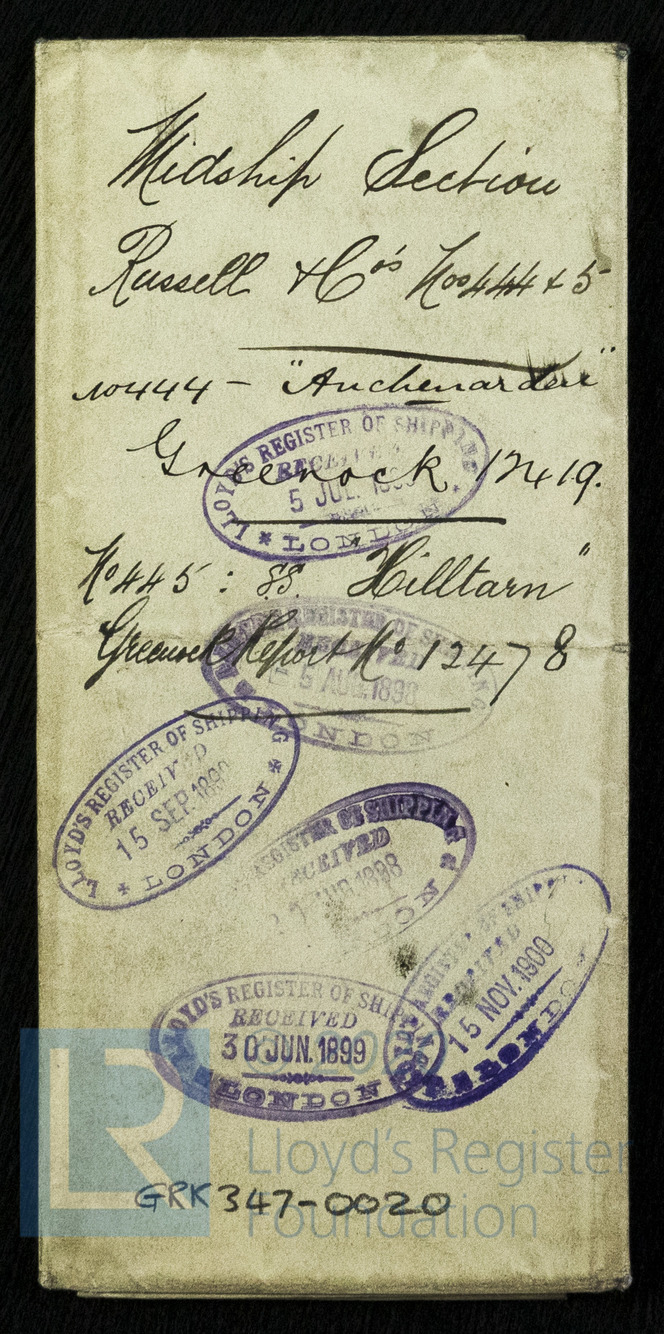 Midship Section
Russell & Co's Nos 444 & 5
No 444 - "Auchenarden"
Greenock 12419.
LLOYD'S REGISTER OF SHIPPING
RECEIVED
5 JUL.
LONDON
No 445 : SS. Hilltarn"
Greenock Report No 12478
REGISTER OF SHIPPING
RECEIVED
5 AUG. 1898
LONDON
LLOYD'S REGISTER OF SHIPPING
RECEIVED
15 SEP.
LONDON
REGISTER OF SHIPPING
RECEIVED
1898
LLOYD'S REGISTER OF SHIPPING
RECEIVED
30 JUN. 1899
LONDON
REGISTER OF SHIPPING
RECEIVED
15 NOV. 1900
LONDON
LR
Lloyd's Register
Foundation
GRK347-0020